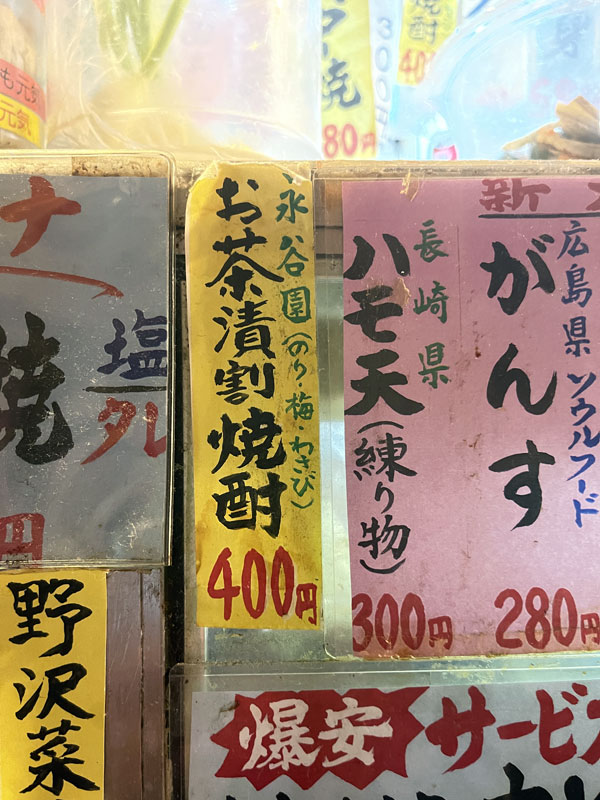 も元気
元気
80円
300円
焼酎
新
広島県 ソウルフード
がんす
280円
長崎県
ハモ天(練り物)
300円
永谷園(のり・梅・わさび)
お茶漬割焼酎
400円
ナ
焼
塩
タレ
円
野沢菜
爆安
サービス